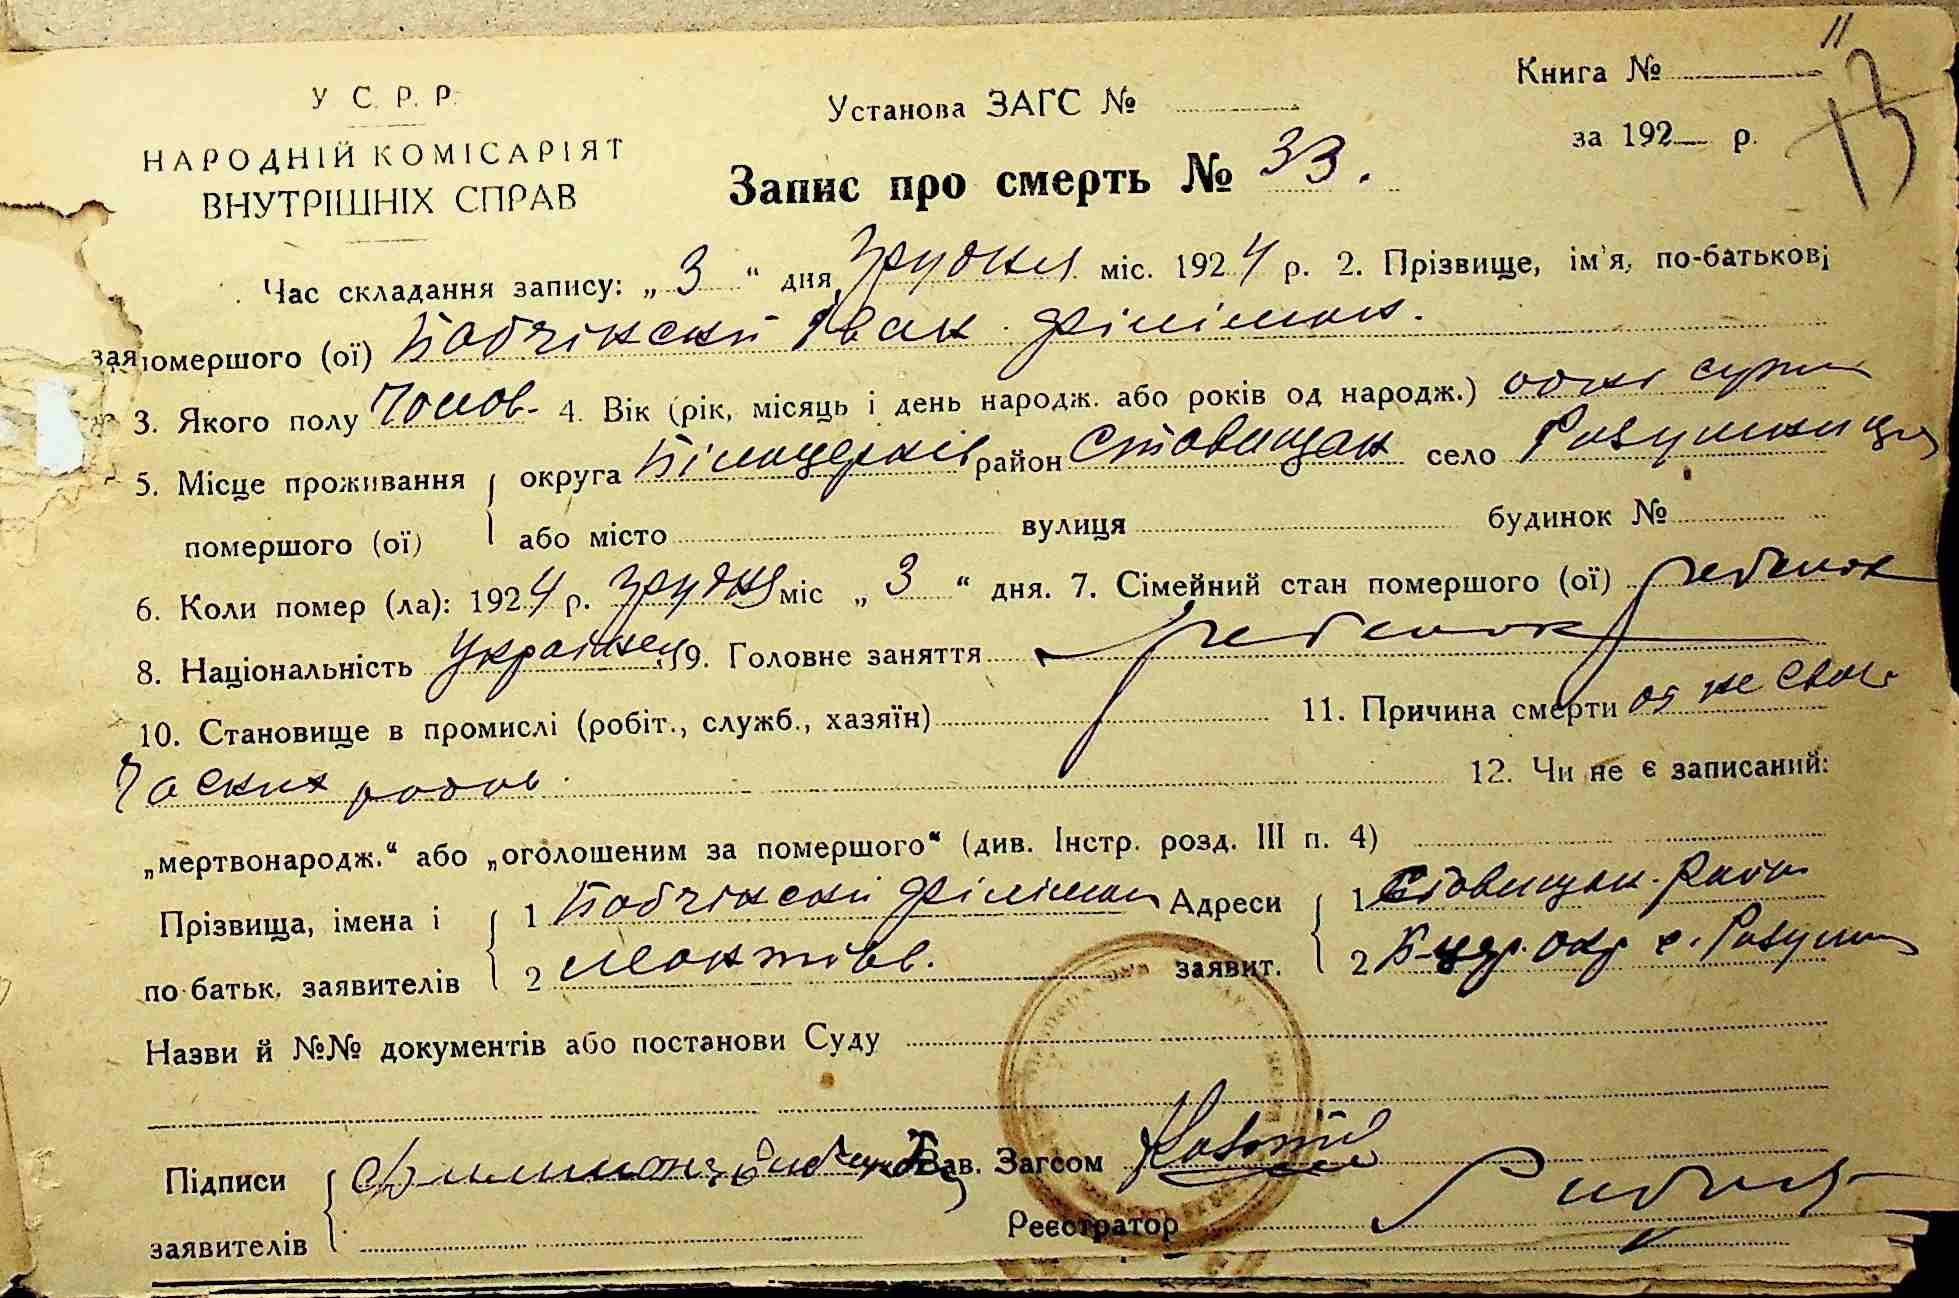 11
13
У С. Р. Р.
НАРОДНІЙ КОМІСАРІЯТ
ВНУТРІШНІХ СПРАВ
Установа ЗАГС №
Книга №
за 192 р.
Запис про смерть № 33.
Час складання запису: „ 3 “ дня Грудня міс. 1924 р. 2. Прізвище, ім'я, по-батькові
зая
помершого (ої) Бабчінский Іван Філімон.
3. Якого полу Чолов. 4. Вік (рік, місяць і день народж. або років од народж.) одні сутки
5. Місце проживання округа Білоцерків район Ставищан село Розумниця
помершого (ої) або місто вулиця будинок №
6. Коли помер (ла): 1924 р. Грудня міс „ 3 “ дня. 7. Сімейний стан помершого (ої) ребенок
8. Національність Українец 9. Головне заняття ребенок
10. Становище в промислі (робіт., служб., хазяїн) 11. Причина смерти от не свое
часних родов.
12. Чи не є записаний:
„мертвонародж.“ або „оголошеним за помершого“ (див. Інстр. розд. III п. 4)
Прізвища, імена і 1 Бабчінский Філімон Адреси 1 Ставищан. район
по батьк. заявителів 2 заявит. 2 Б-цер. окр с.
Назви й №№ документів або постанови Суду
Підписи Зав. Загсом
заявителів Реєстратор